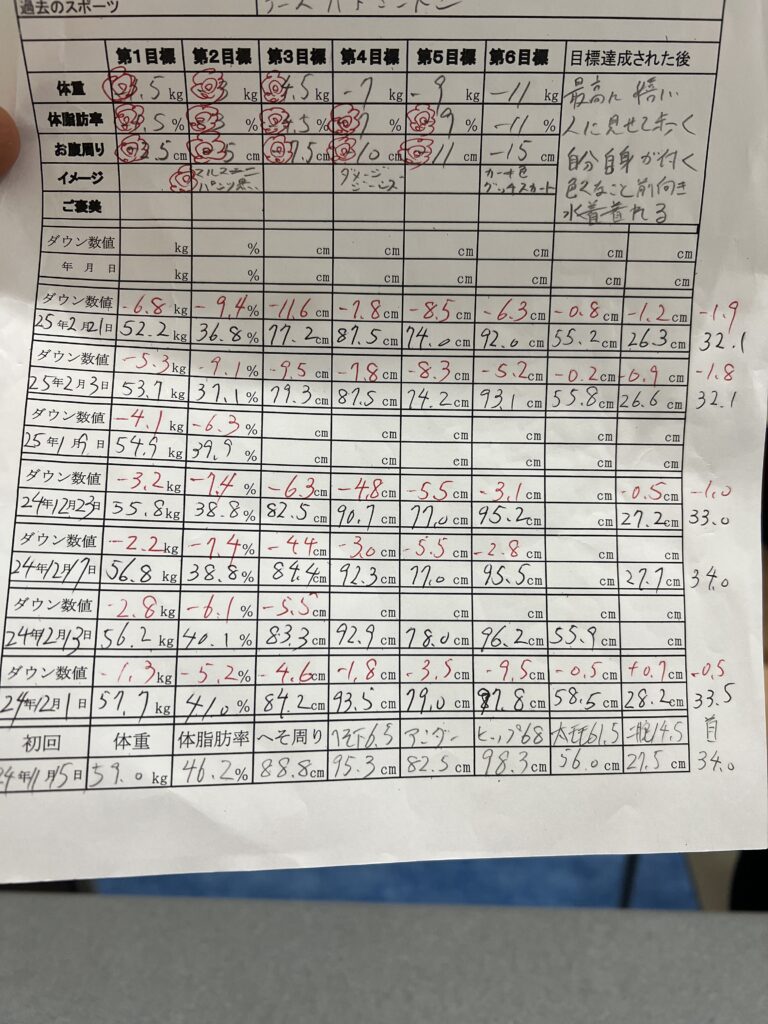 過去のスポーツ
第1目標 第2目標 第3目標 第4目標 第5目標 第6目標 目標達成された後
体重 .5kg kg 4.5kg -7kg -9kg -11kg 最高に嬉しい
体脂肪率 .5% 3% 4.5% 7% 9% -11% 人に見せて歩く
お腹周り 2.5cm 5cm 7.5cm 10cm 11cm -15cm 自分自身が
イメージ ダメージジーンズ 前向き
ご褒美 水着着れる
ダウン数値 kg % cm cm cm cm cm cm
年 月 日 kg % cm cm cm cm cm cm
ダウン数値 -6.8kg -9.4% -11.6cm -7.8cm -8.5cm -6.3cm -0.8cm -1.2cm -1.9
25年2月21日 52.2kg 36.8% 77.2cm 87.5cm 74.0cm 92.0cm 55.2cm 26.3cm 32.1
ダウン数値 -5.3kg -9.1% -9.5cm -7.8cm -8.3cm -5.2cm -0.2cm -0.9cm -1.8
25年2月3日 53.7kg 37.1% 79.3cm 87.5cm 74.2cm 93.1cm 55.8cm 26.6cm 32.1
ダウン数値 -4.1kg -6.3% cm cm cm cm cm
25年1月9日 54.9kg 39.9% cm cm cm cm cm
ダウン数値 -3.2kg -7.4% -6.3cm -4.8cm -5.5cm -3.1cm -0.5cm -1.0
24年12月23日 55.8kg 38.8% 82.5cm 90.7cm 77.0cm 95.2cm cm 27.2cm 33.0
ダウン数値 -2.2kg -7.4% -4.4cm -3.0cm -5.5cm -2.8cm cm
24年12月17日 56.8kg 38.8% 84.4cm 92.3cm 77.0cm 95.5cm cm 27.7cm 34.0
ダウン数値 -2.8kg -6.1% -5.5cm cm cm cm cm cm
24年12月13日 56.2kg 40.1% 83.3cm 92.9cm 78.0cm 96.2cm 55.9cm cm
ダウン数値 -1.3kg -5.2% -4.6cm -1.8cm -3.5cm -9.5cm -0.5cm +0.7cm -0.5
24年12月1日 57.7kg 41.0% 84.2cm 93.5cm 79.0cm 97.8cm 58.5cm 28.2cm 33.5
初回 体重 体脂肪率 へそ周り へそ下6.5 アンダー ヒップ68 太モモ61.5 二腕14.5 首
24年11月15日 59.0kg 46.2% 88.8cm 95.3cm 82.5cm 98.3cm 56.0cm 27.5cm 34.0